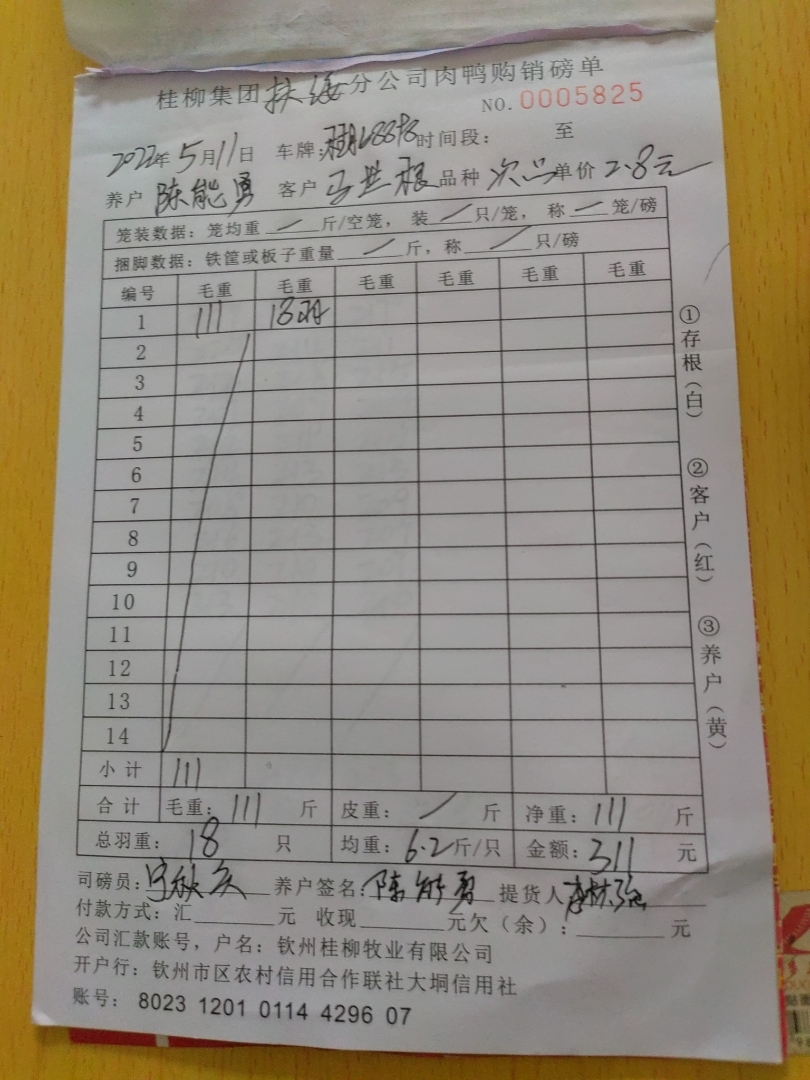 桂柳集团扶绥分公司肉鸭购销磅单
NO.0005825
2022年5月11日 车牌: 时间段: 至
养户 陈能勇 客户 马世根 品种 次品 单价 2.8元
笼装数据: 笼均重 / 斤/空笼, 装 / 只/笼, 称 / 笼/磅
捆脚数据: 铁筐或板子重量 / 斤, 称 / 只/磅
编号 毛重 毛重 毛重 毛重 毛重 毛重
1 111 18羽
2
3
4
5
6
7
8
9
10
11
12
13
14
小计 111
合计 毛重: 111 斤 皮重: / 斤 净重: 111 斤
总羽重: 18 只 均重: 6.2 斤/只 金额: 311 元
司磅员: 养户签名: 陈能勇 提货人
付款方式: 汇 元 收现 元欠(余): 元
公司汇款账号, 户名: 钦州桂柳牧业有限公司
开户行: 钦州市区农村信用合作联社大垌信用社
账号: 8023 1201 0114 4296 07
①存根(白)
②客户(红)
③养户(黄)